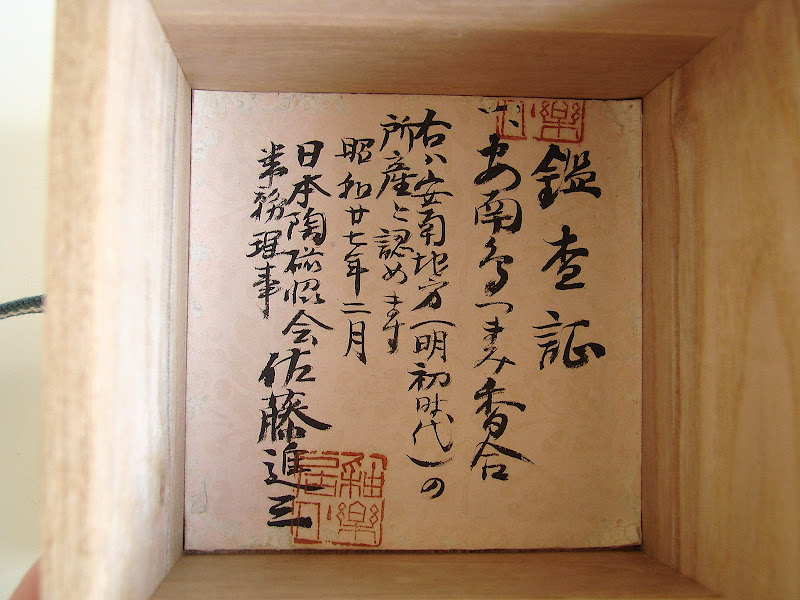 鑑査証
安南鳥つまみ香合
右ハ安南地方（明初時代）の
所産と認めます
昭和廿七年二月
日本陶磁協会
務理事
佐藤進三